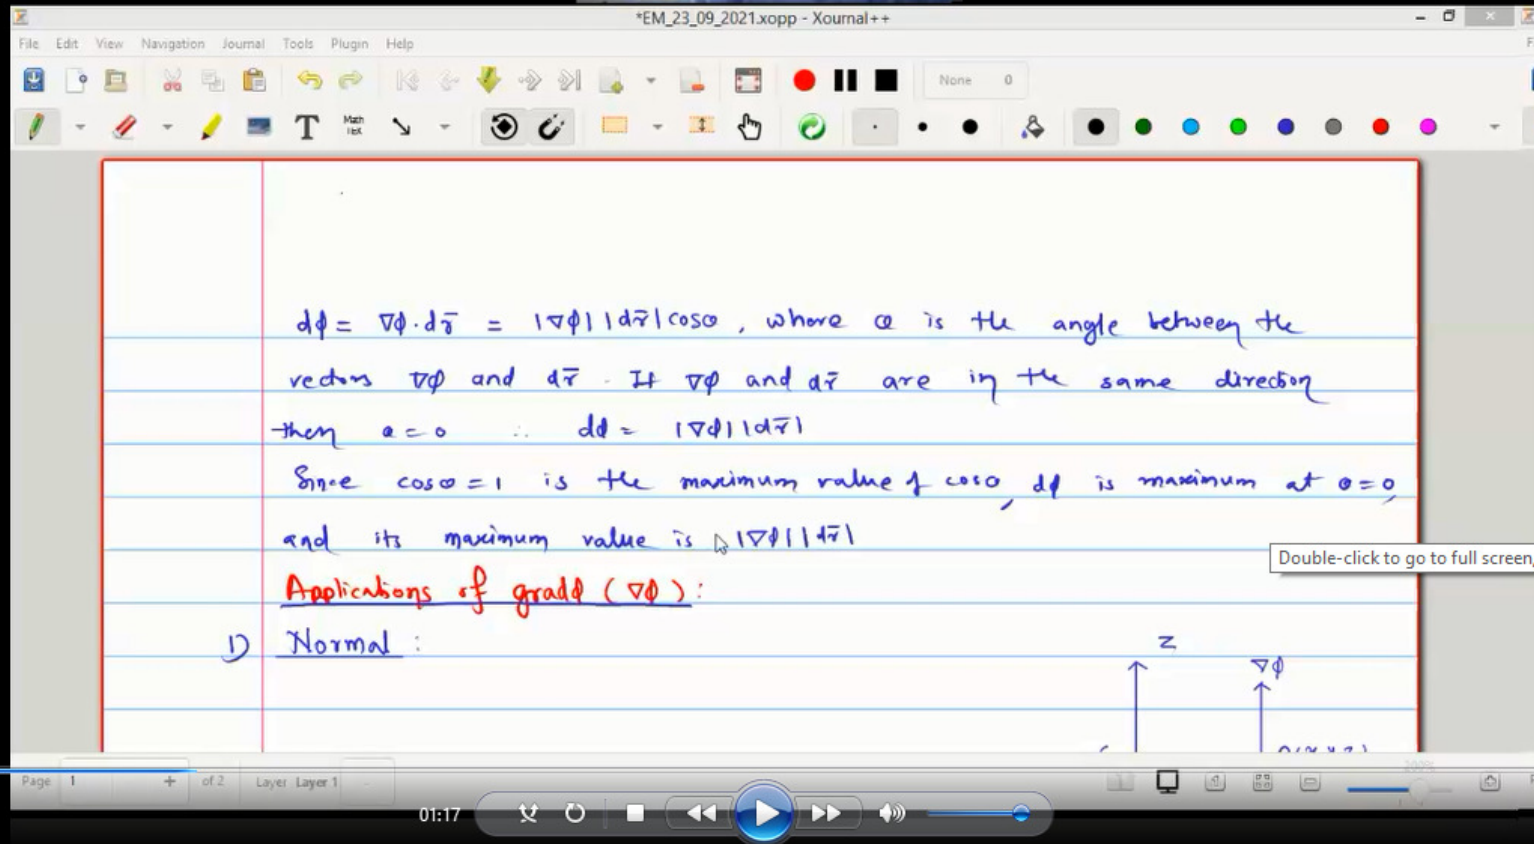 *EM_23_09_2021.xopp - Xournal++
File Edit View Navigation Journal Tools Plugin Help
None 0
T Math TEX
dϕ = ∇ϕ·dr̄ = |∇ϕ| |dr̄| cosθ, where θ is the angle between the
vectors ∇ϕ and dr̄. If ∇ϕ and dr̄ are in the same direction
then θ = 0 ∴ dϕ = |∇ϕ| |dr̄|
Since cosθ = 1 is the maximum value of cosθ, dϕ is maximum at θ = 0,
and its maximum value is |∇ϕ| |dr̄|
Double-click to go to full screen,
Applications of gradϕ (∇ϕ) :
1) Normal :
Z
∇ϕ
Page 1 of 2 Layer Layer 1 200%
01:17